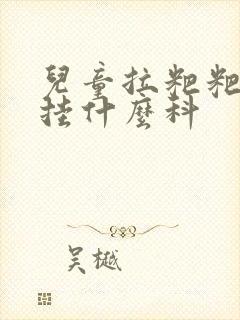 兒童拉粑粑
挂什麼科
吴樾